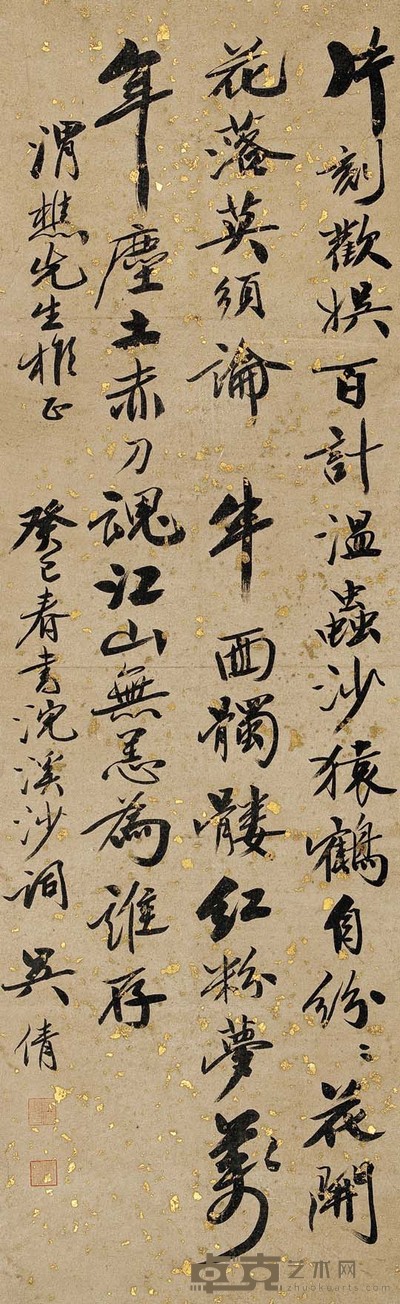 片刻歡娛百計溫蟲沙猿鶴自紛〻花開
花落莫須論 半面髑髏紅粉夢萬
年塵土赤刀魂江山無恙為誰存
渭樵先生雅正 癸巳春書浣溪沙詞 吳倩
卓克艺术网
zhuokearts.com